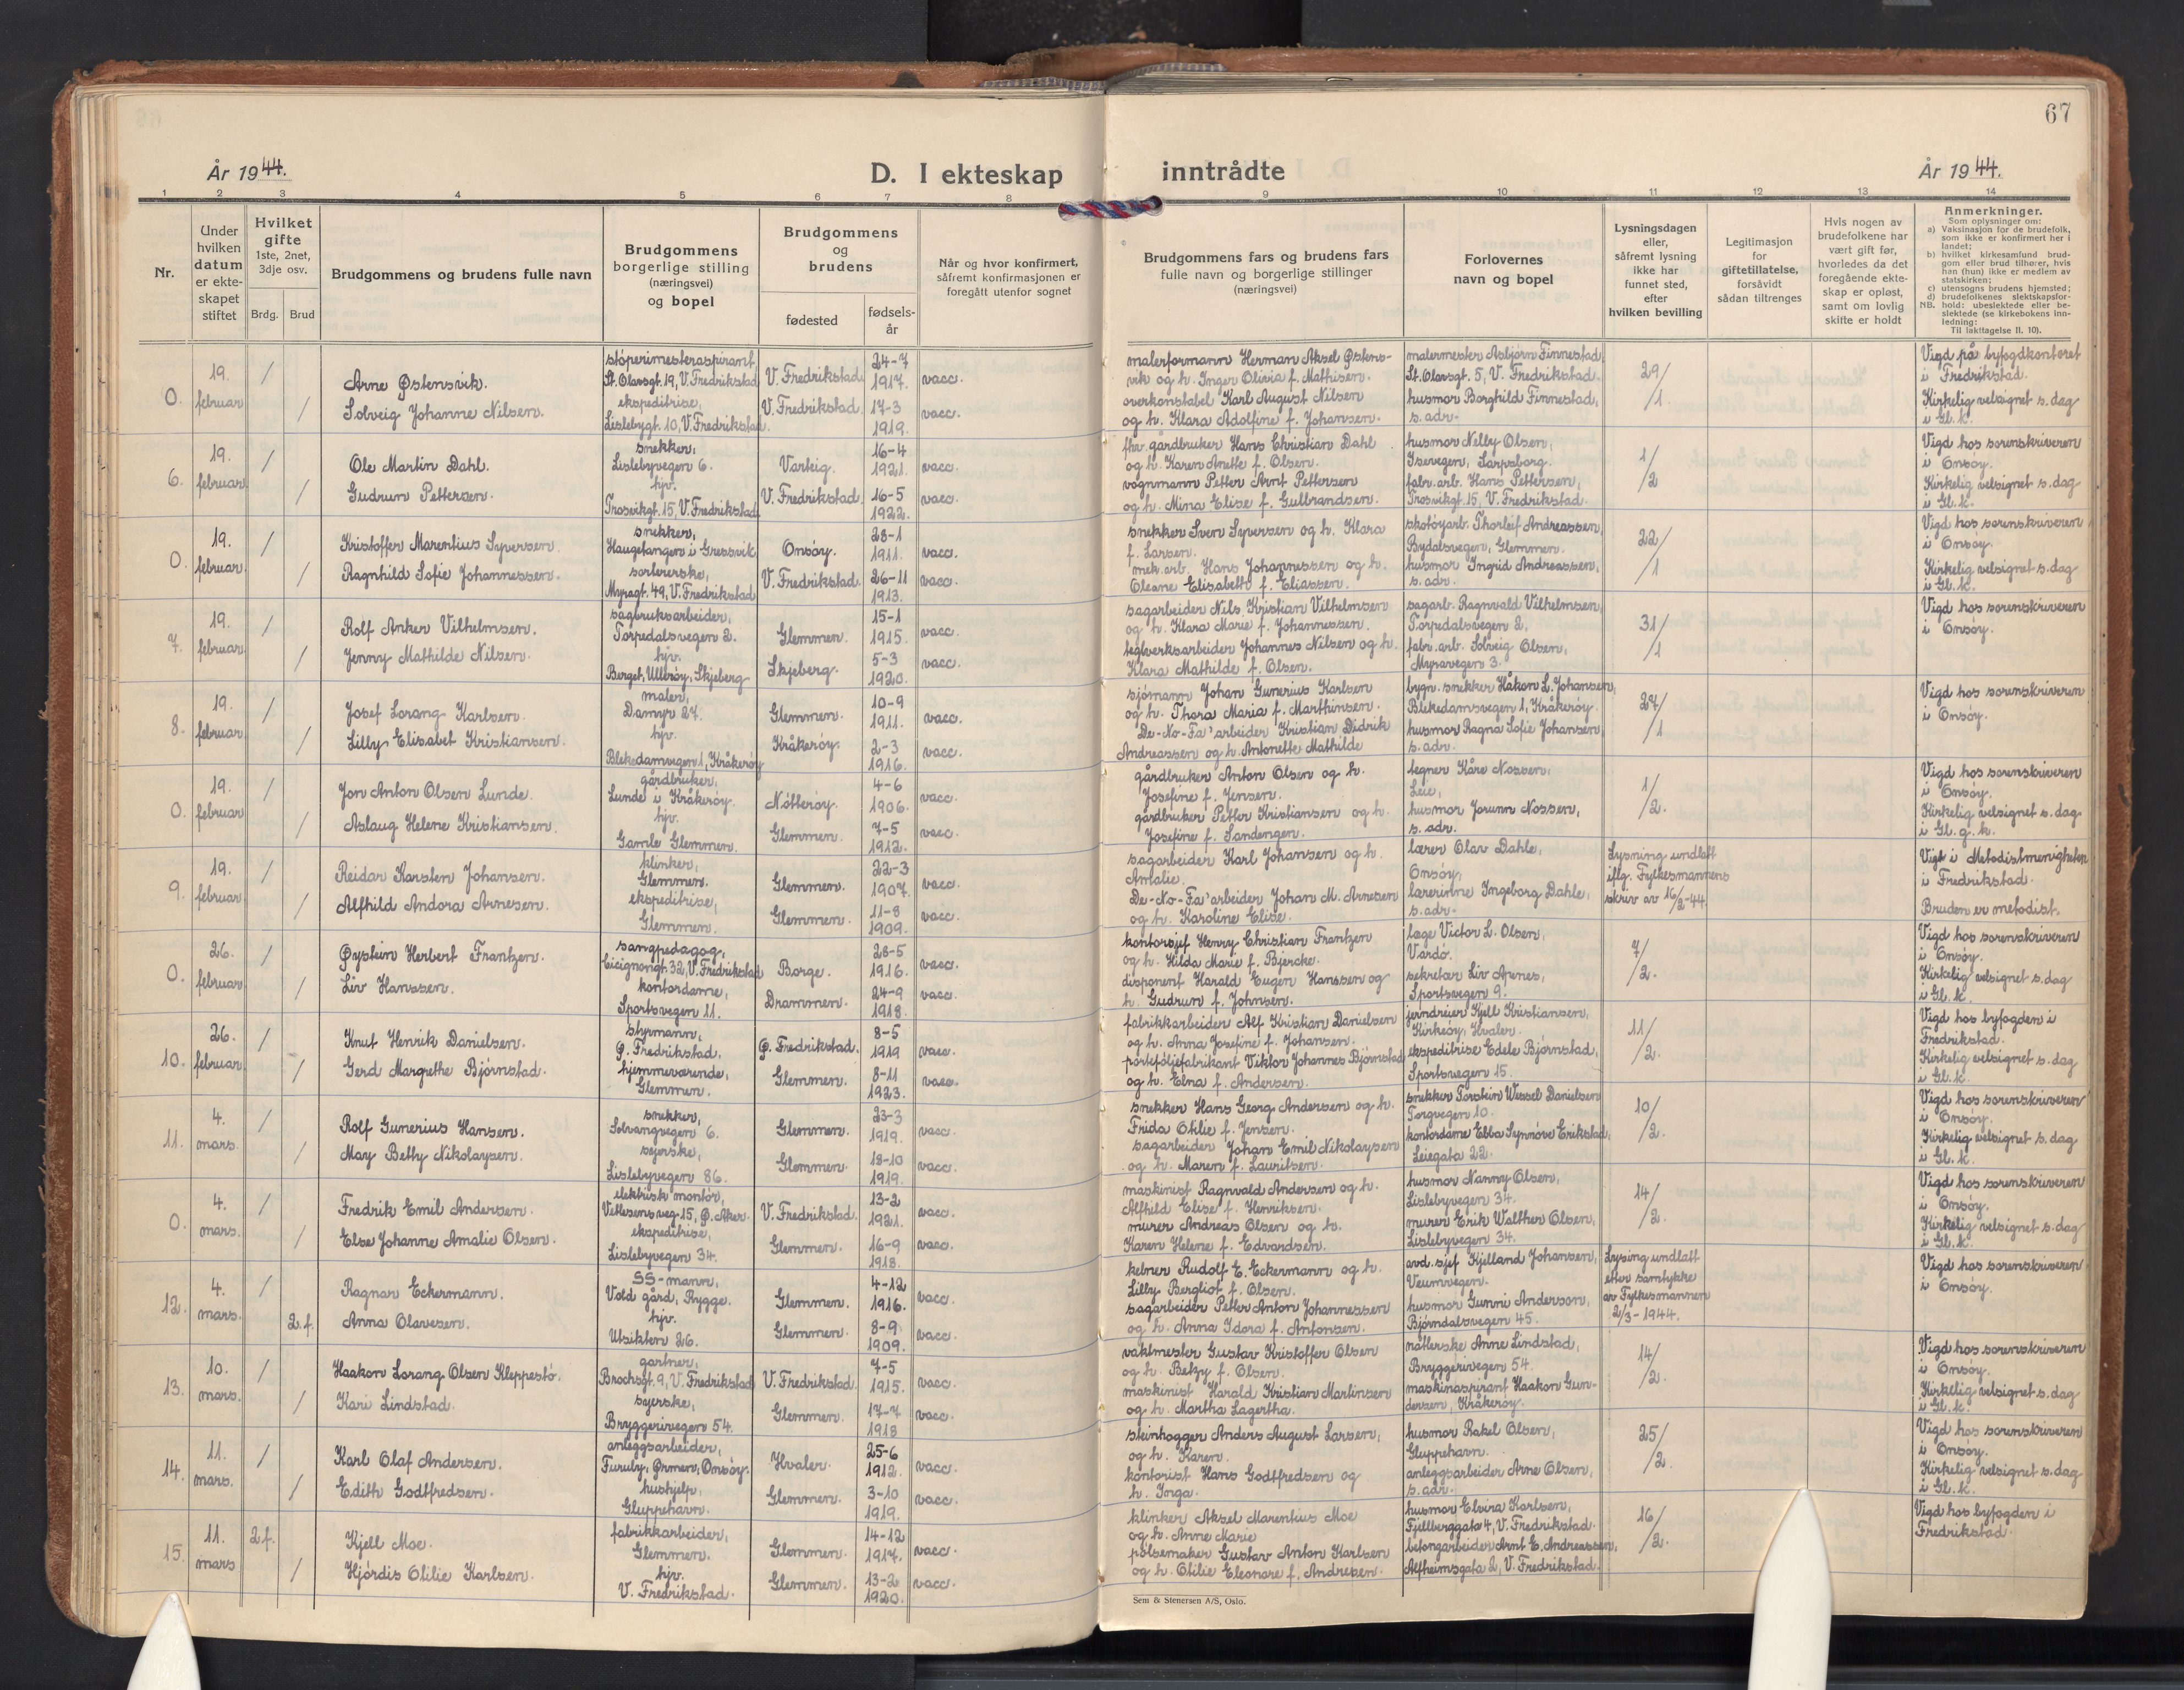 67
År 1944.
D. I ekteskap inntrådte
År 1944.
1 2 3 4 5 6 7 8 9 10 11 12 13 14
Nr.
Under
hvilken
datum
er ekte-
skapet
stiftet
Hvilket
gifte
1ste, 2net,
3dje osv.
Brdg. Brud
Brudgommens og brudens fulle navn
Brudgommens
borgerlige stilling
(næringsvei)
og bopel
Brudgommens
og
brudens
fødested
fødsels-
år
Når og hvor konfirmert,
såfremt konfirmasjonen er
foregått utenfor sognet
Brudgommens fars og brudens fars
fulle navn og borgerlige stillinger
(næringsvei)
Forlovernes
navn og bopel
Lysningsdagen
eller,
såfremt lysning
ikke har
funnet sted,
efter
hvilken bevilling
Legitimasjon
for
giftetillatelse,
forsåvidt
sådan tiltrenges
Hvis nogen av
brudefolkene har
vært gift før,
hvorledes da det
foregående ekte-
skap er opløst,
samt om lovlig
skifte er holdt
Anmerkninger.
Som oplysninger om:
a) Vaksinasjon for de brudefolk,
som ikke er konfirmert her i
landet;
b) hvilket kirkesamfund brud-
gom eller brud tilhører, hvis
han (hun) ikke er medlem av
statskirken;
c) utensogns brudens hjemsted;
d) brudefolkenes slektskapsfor-
NB. hold: ubeslektede eller be-
slektede (se kirkebokens inn-
ledning:
Til iakttagelse II. 10).
0. 19. februar / /
Arne Østensvik.
Solveig Johanne Nilsen.
støperimesteraspirant
St. Olavsgt. 19, V. Fredrikstad
ekspeditrise,
Lislebygt. 10, V. Fredrikstad.
V. Fredrikstad. 24-7 1917. vacc.
V. Fredrikstad. 17-3 1919. vacc.
malerformann Herman Aksel Østens-
vik og h. Inger Olivia f. Mathisen.
overkonstabel Karl August Nilsen
og h. Klara Adolfine f. Johansen.
malermester Asbjørn Finnestad,
St. Olavsgt. 5, V. Fredrikstad.
husmor Borghild Finnestad,
s. adr.
29/1.
Vigd på byfogdkontoret
i Fredrikstad.
Kirkelig velsignet s. dag
i Gl. k.
6. 19. februar / /
Ole Martin Dahl.
Gudrun Pettersen.
snekker,
Lislebyvegen 6.
hjv.
Trosvikgt. 15, V. Fredrikstad
Varteig. 16-4 1921. vacc.
V. Fredrikstad. 16-5 1922. vacc.
fhv. gårdbruker Hans Christian Dahl
og h. Karen Anette f. Olsen.
vognmann Petter Arnt Pettersen
og h. Mina Elise f. Gulbrandsen.
husmor Nelly Olsen,
Isevegen, Sarpsborg.
fabr. arb. Hans Pettersen,
Trosvikgt. 15, V. Fredrikstad.
1/2
Vigd hos sorenskriveren
i Onsøy.
Kirkelig velsignet s. dag
i Gl. k.
0. 19. februar / /
Kristoffer Marentius Syversen.
Ragnhild Sofie Johannessen.
snekker,
Haugetangen i Gressvik
sorlererske,
Myragt. 49, V. Fredrikstad
Onsøy. 23-1 1911. vacc.
V. Fredrikstad. 26-11 1913. vacc.
snekker Sven Syversen og h. Klara
f. Larsen.
mek. arb. Hans Johannessen og h.
Oleane Elisabeth f. Eliassen.
skotøyarb. Thorleif Andreassen,
Bydalsvegen, Glemmen.
husmor Ingrid Andreassen,
s. adr.
22/1
Vigd hos sorenskriveren
i Onsøy.
Kirkelig velsignet s. dag
i Gl. k.
7. 19. februar / /
Rolf Anker Vilhelmsen.
Jenny Mathilde Nilsen.
sagbruksarbeider,
Torpedalsvegen 2.
hjv.
Berget, Ullerøy, Skjeberg
Glemmen. 15-1 1915. vacc.
Skjeberg. 5-3 1920. vacc.
sagarbeider Nils Kristian Vilhelmsen
og h. Klara Marie f. Johannessen.
teglverksarbeider Johannes Nilsen og h.
Klara Mathilde f. Olsen.
sagarb. Ragnvald Vilhelmsen,
Torpedalsvegen 2,
fabr. arb. Solveig Olsen,
Myravegen 3.
31/1
Vigd hos sorenskriveren
i Onsøy.
8. 19. februar / /
Josef Lorang Karlsen.
Lilly Elisabet Kristiansen.
maler,
Damyr 27.
hjv.
Blekedamvegen 1, Kråkerøy
Glemmen. 10-9 1911. vacc.
Kråkerøy. 2-3 1916. vacc.
sjømann Johan Gunerius Karlsen
og h. Thora Maria f. Marthinsen.
De-No-Fa' arbeider Kristian Didrik
Andreassen og h. Antonette Mathilde
bygn. snekker Håkon L. Johansen,
Blekedamsvegen 1, Kråkerøy.
husmor Ragna Sofie Johansen,
s. adr.
27/1
Vigd hos sorenskriveren
i Onsøy.
0. 19. februar / /
Jon Anton Olsen Lunde.
Aslaug Helene Kristiansen.
gårdbruker,
Lunde i Kråkerøy.
hjv.
Gamle Glemmen.
Nøtterøy. 4-6 1906. vacc.
Glemmen. 7-5 1912. vacc.
gårdbruker Anton Olsen og h.
Josefine f. Jensen.
gårdbruker Petter Kristiansen og h.
Josefine f. Sandengen.
tegner Kåre Nossen,
Leie,
husmor Jorunn Nossen,
s. adr.
1/2.
Vigd hos sorenskriveren
i Onsøy.
Kirkelig velsignet s. dag
i Gl. g. k.
9. 19. februar / /
Reidar Karsten Johansen.
Alfhild Andora Arnesen.
klinker,
Glemmen.
ekspeditrise,
Glemmen.
Glemmen. 22-3 1907. vacc.
Glemmen. 11-8 1909. vacc.
sagarbeider Karl Johansen og h.
Amalie.
De-No-Fa' arbeider Johan M. Arnesen
og h. Karoline Elise.
lærer Olav Dahle,
Onsøy,
lærerinne Ingeborg Dahle,
s. adr.
Lysning undlatt
iflg. Fylkesmannens
skriv av 16/2-44.
Vigd i Metodistmenigheten
i Fredrikstad.
Bruden er metodist.
0. 26. februar / /
Øystein Herbert Frantzen.
Liv Hanssen.
sangpedagog,
Cicignongt. 32, V. Fredrikstad
kontordame,
Sportsvegen 11.
Borge. 28-5 1916. vacc.
Drammen. 24-9 1918. vacc.
kontorsjef Henry Christian Frantzen
og h. Hilda Marie f. Bjercke.
disponent Harald Eugen Hanssen og
h. Gudrun f. Johnsen.
læge Victor L. Olsen,
Vardø.
sekretær Liv Arenes,
Sportsvegen 9.
7/2.
Vigd hos sorenskriveren
i Onsøy.
Kirkelig velsignet s. dag
i Gl. k.
10. 26. februar / /
Knut Henrik Danielsen.
Gerd Margrethe Bjørnstad.
styrmann,
Ø. Fredrikstad.
hjemmeværende,
Glemmen.
Ø. Fredrikstad. 8-5 1919 vacc.
Glemmen. 8-11 1923. vacc.
fabrikkarbeider Alf Kristian Danielsen
og h. Anna Josefine f. Johansen.
porteføljefabrikant Viktor Johannes Bjørnstad
og h. Elna f. Andersen.
jerndreier Kjell Kristiansen,
Kirkeøy, Hvaler.
ekspeditrise Edele Bjørnstad,
Sportsvegen 15.
11/2.
Vigd hos byfogden i
Fredrikstad.
Kirkelig velsignet s. dag
i Gl. k.
11. 4. mars. / /
Rolf Gunerius Hansen.
May Betty Nikolaysen.
snekker,
Solvangvegen 6.
syerske,
Lislebyvegen 86.
Glemmen. 23-3 1919. vacc.
Glemmen. 18-10 1919. vacc.
snekker Hans Georg Andersen og h.
Frida Otilie f. Jensen.
sagarbeider Johan Emil Nikolaysen
og h. Maren f. Lauritsen.
snekker Torstein Wessel Danielsen
Torgvegen 10.
kontordame Ebba Synnøve Erikstad,
Leiegata 22.
10/2.
Vigd hos sorenskriveren
i Onsøy.
Kirkelig velsignet s. dag
i Gl. k.
0. 4. mars. / /
Fredrik Emil Andersen.
Else Johanne Amalie Olsen.
elektrisk montør,
Vetlesensveg. 15, Ø. Aker.
ekspeditrise,
Lislebyvegen 34.
V. Fredrikstad. 13-2 1921. vacc.
Glemmen. 16-9 1918. vacc.
maskinist Ragnvald Andersen og h.
Alfhild Elise f. Henriksen.
murer Andreas Olsen og h.
Karen Helene f. Edvardsen.
husmor Nanny Olsen,
Lislebyvegen 34.
murer Erik Walther Olsen,
Lislebyvegen 34.
14/2.
Vigd hos sorenskriveren
i Onsøy.
Kirkelig velsignet s. dag
i Gl. k.
12. 4. mars. / 2. f.
Ragnar Eckermann.
Anna Olavesen.
SS-mann,
Vold gård, Rygge.
hjv.
Utsikten 26.
Glemmen. 4-12 1916. vacc.
Glemmen. 8-9 1909. vacc.
kelner Rudolf E. Eckermann og h.
Lilly Bergliot f. Olsen.
sagarbeider Petter Anton Johannessen
og h. Anna Idora f. Antonsen.
avd. sjef Kjelland Johansen,
Veumvegen.
husmor Gunni Anderson,
Bjørndalsvegen 45.
Lysing undlatt
etter samtykke
av Fylkesmannen
2/3-1944.
Vigd hos sorenskriveren
i Onsøy.
13. 10. mars. / /
Haakon Lorang Olsen Kleppestø.
Kari Lindstad.
gartner,
Brochsgt. 9, V. Fredrikstad
syerske,
Bryggerivegen 54.
V. Fredrikstad. 7-5 1915. vacc.
Glemmen. 17-7 1918 vacc.
vaktmester Gustav Kristoffer Olsen
og h. Betzy f. Olsen.
maskinist Harald Kristian Martinsen
og h. Martha Lagertha.
nåtlerske Anne Lindstad,
Bryggerivegen 54.
maskinaspirant Haakon Gun-
dersen, Kråkerøy.
14/2.
Vigd hos sorenskriveren
i Onsøy.
Kirkelig velsignet s. dag
i Gl. k.
14. 11. mars. / /
Karl Olaf Andersen.
Edith Godtfredsen.
anleggsarbeider,
Furuly, Ørmen, Onsøy.
hushjelp,
Gluppehavn.
Hvaler. 25-6 1912. vacc.
Glemmen. 3-10 1919. vacc.
steinhogger Anders August Larsen,
og h. Karen.
kontorist Hans Godtfredsen og
h. Inga.
husmor Rakel Olsen,
Gluppehavn.
anleggsarbeider Arne Olsen,
s. adr.
25/2.
Vigd hos sorenskriveren
i Onsøy.
Kirkelig velsignet s. dag
i Gl. k.
15. 11. mars 2. f. /
Kjell Moe.
Hjørdis Otilie Karlsen.
fabrikkarbeider,
Glemmen.
hjv.
V. Fredrikstad.
Glemmen. 14-12 1917. vacc.
Glemmen. 13-2 1920. vacc.
klinker Aksel Marentius Moe
og h. Anne Marie
pølsemaker Gustav Anton Karlsen
og h. Otilie Eleonore f. Andresen.
husmor Elvira Karlsen,
Fjellberggata 4, V. Fredrikstad.
betongarbeider Arnt E. Andreassen,
Alfheimsgata 2, V. Fredrikstad.
16/2.
Vigd hos byfogden i
Fredrikstad.
Sem & Stenersen A/S, Oslo.